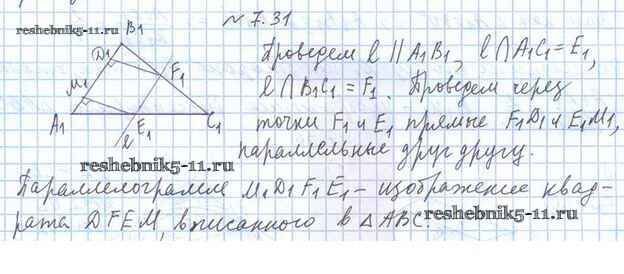 № 7.31
reshebnik5-11.ru
B₁
D₁
F₁
M₁
A₁
E₁
C₁
l
Проведем l || A₁B₁, l ⋂ A₁C₁ = E₁,
l ⋂ B₁C₁ = F₁. Проведем через
точки F₁ и E₁ прямые F₁D₁ и E₁M₁,
параллельные друг другу.
reshebnik5-11.ru
Параллелограмм M₁D₁F₁E₁ – изображение квад-
рата DFEM, вписанного в △ABC.
reshebnik5-11.ru